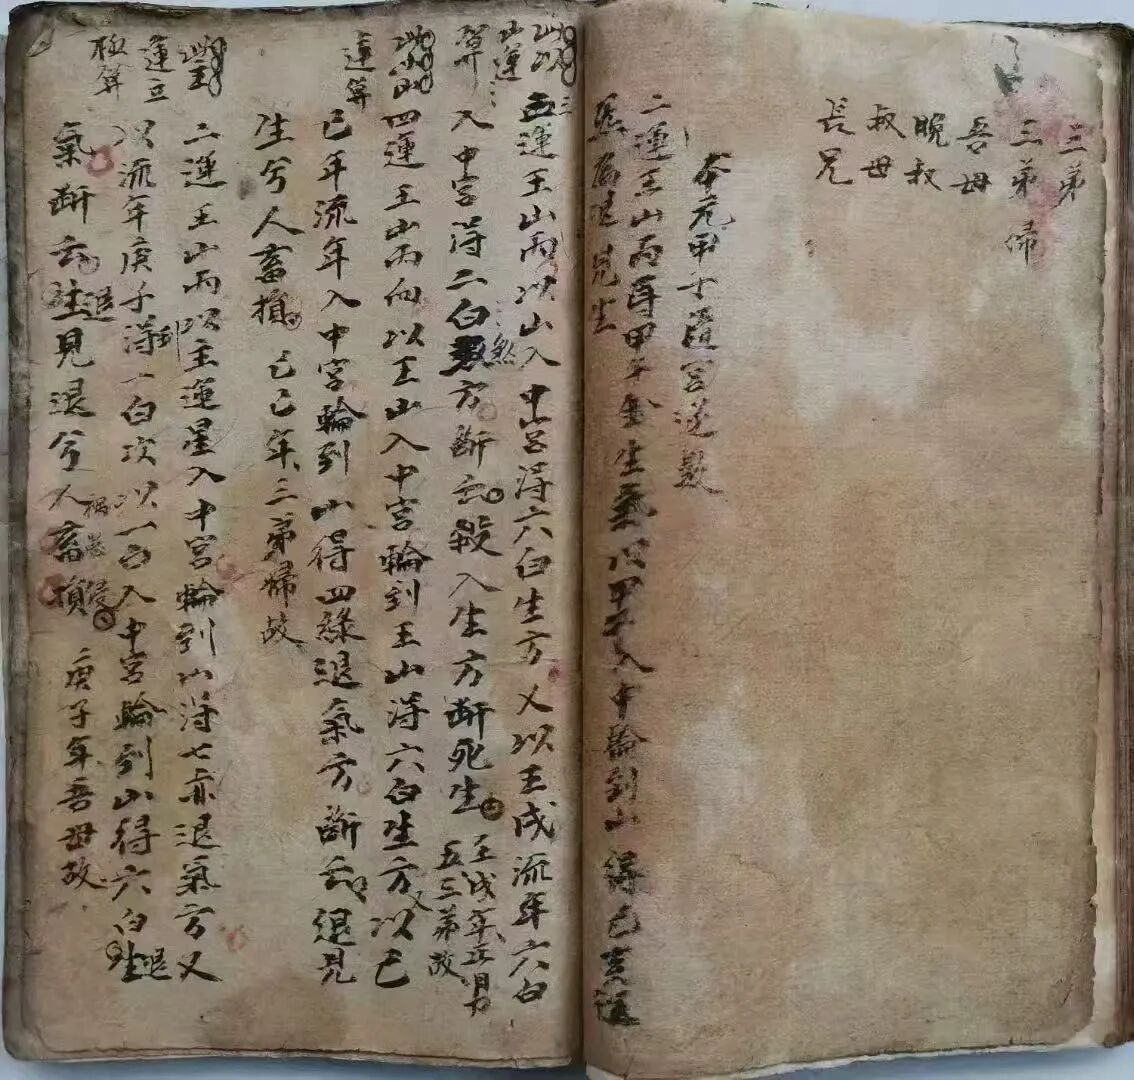 三弟
三弟帰
吾母
晩叔
叔母
長兄
本元甲子值宮逆數
二運壬山丙甲子生氣以甲子入中輪到山得七赤退
退見生
三
五運壬山丙以山入中宮得六白生方又以壬戌流年六白
入中宮得二白煞方断云殺入生方断死生
壬戌年正月
五三弟故
此以
山運
算
四運壬山丙向以壬山入中宮輪到壬山得六白生方又以己
巳年流年入中宮輪到山得四綠退氣方断云退見
生兮人畜損 己巳年三弟帰故
運算
二運壬山丙以主運星入中宮輪到山得七赤退氣方又
以流年庚子得一白次以一白入中宮輪到山得六白生退
氣断云生退見退兮人畜損 庚子年吾母故
運立
極算